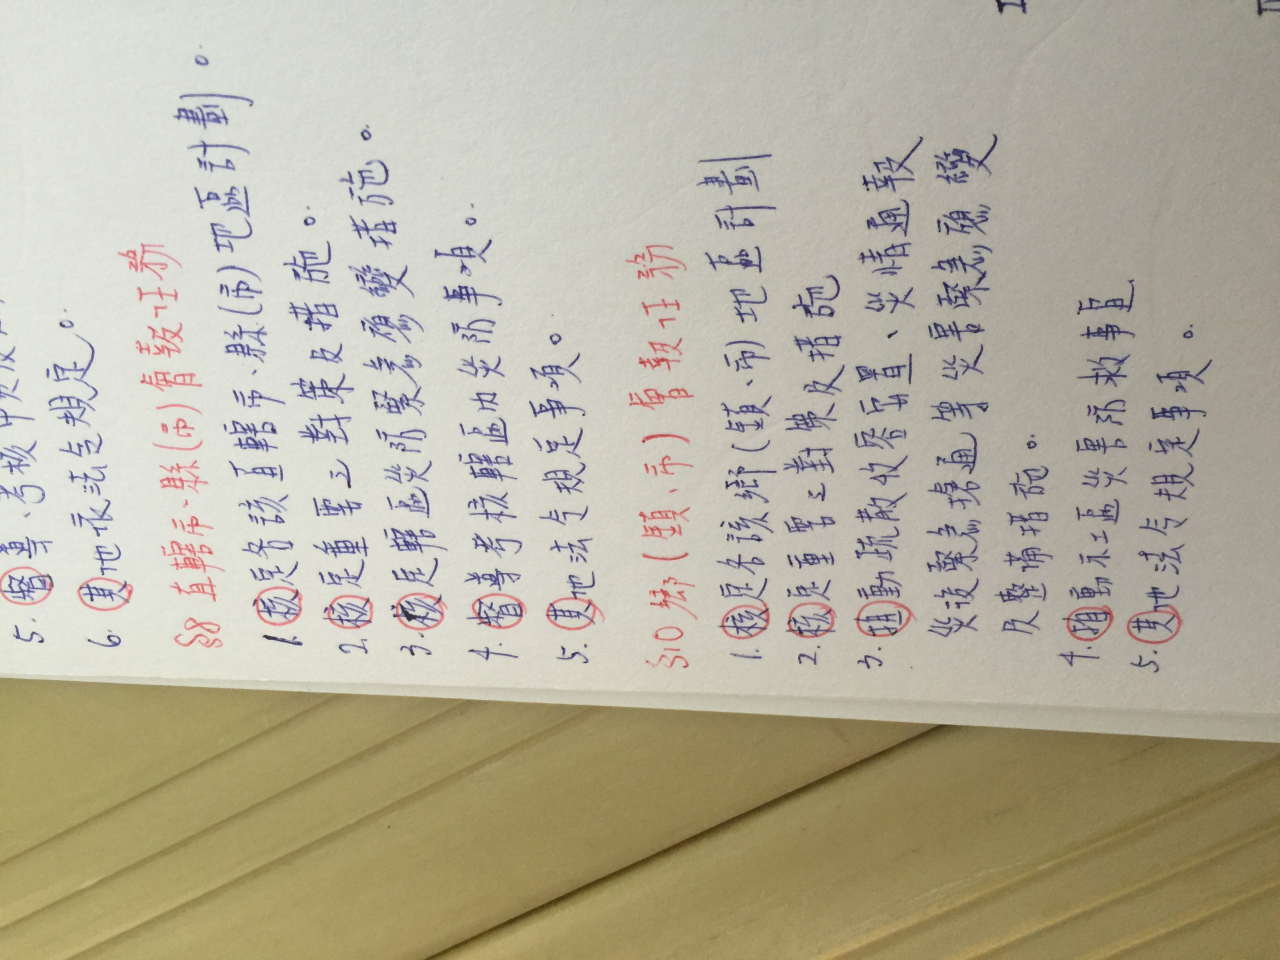 5. 督導、考核中央及
6. 其他依法令規定。
§8 直轄市、縣(市)會報任務
1. 核定各該直轄市、縣(市)地區計劃。
2. 核定重要之對策及措施。
3. 核定轄區災防緊急應變措施。
4. 督導考核轄區內災防事項。
5. 其他法令規定事項。
§10 鄉(鎮、市)會報任務
1. 核定各該鄉(鎮、市)地區計劃
2. 核定重要之對策及措施
3. 推動疏散收容安置、災情通報
災後緊急搶通等災害緊急應變
及整備措施。
4. 推動社區災害防救事宜
5. 其他法令規定事項。